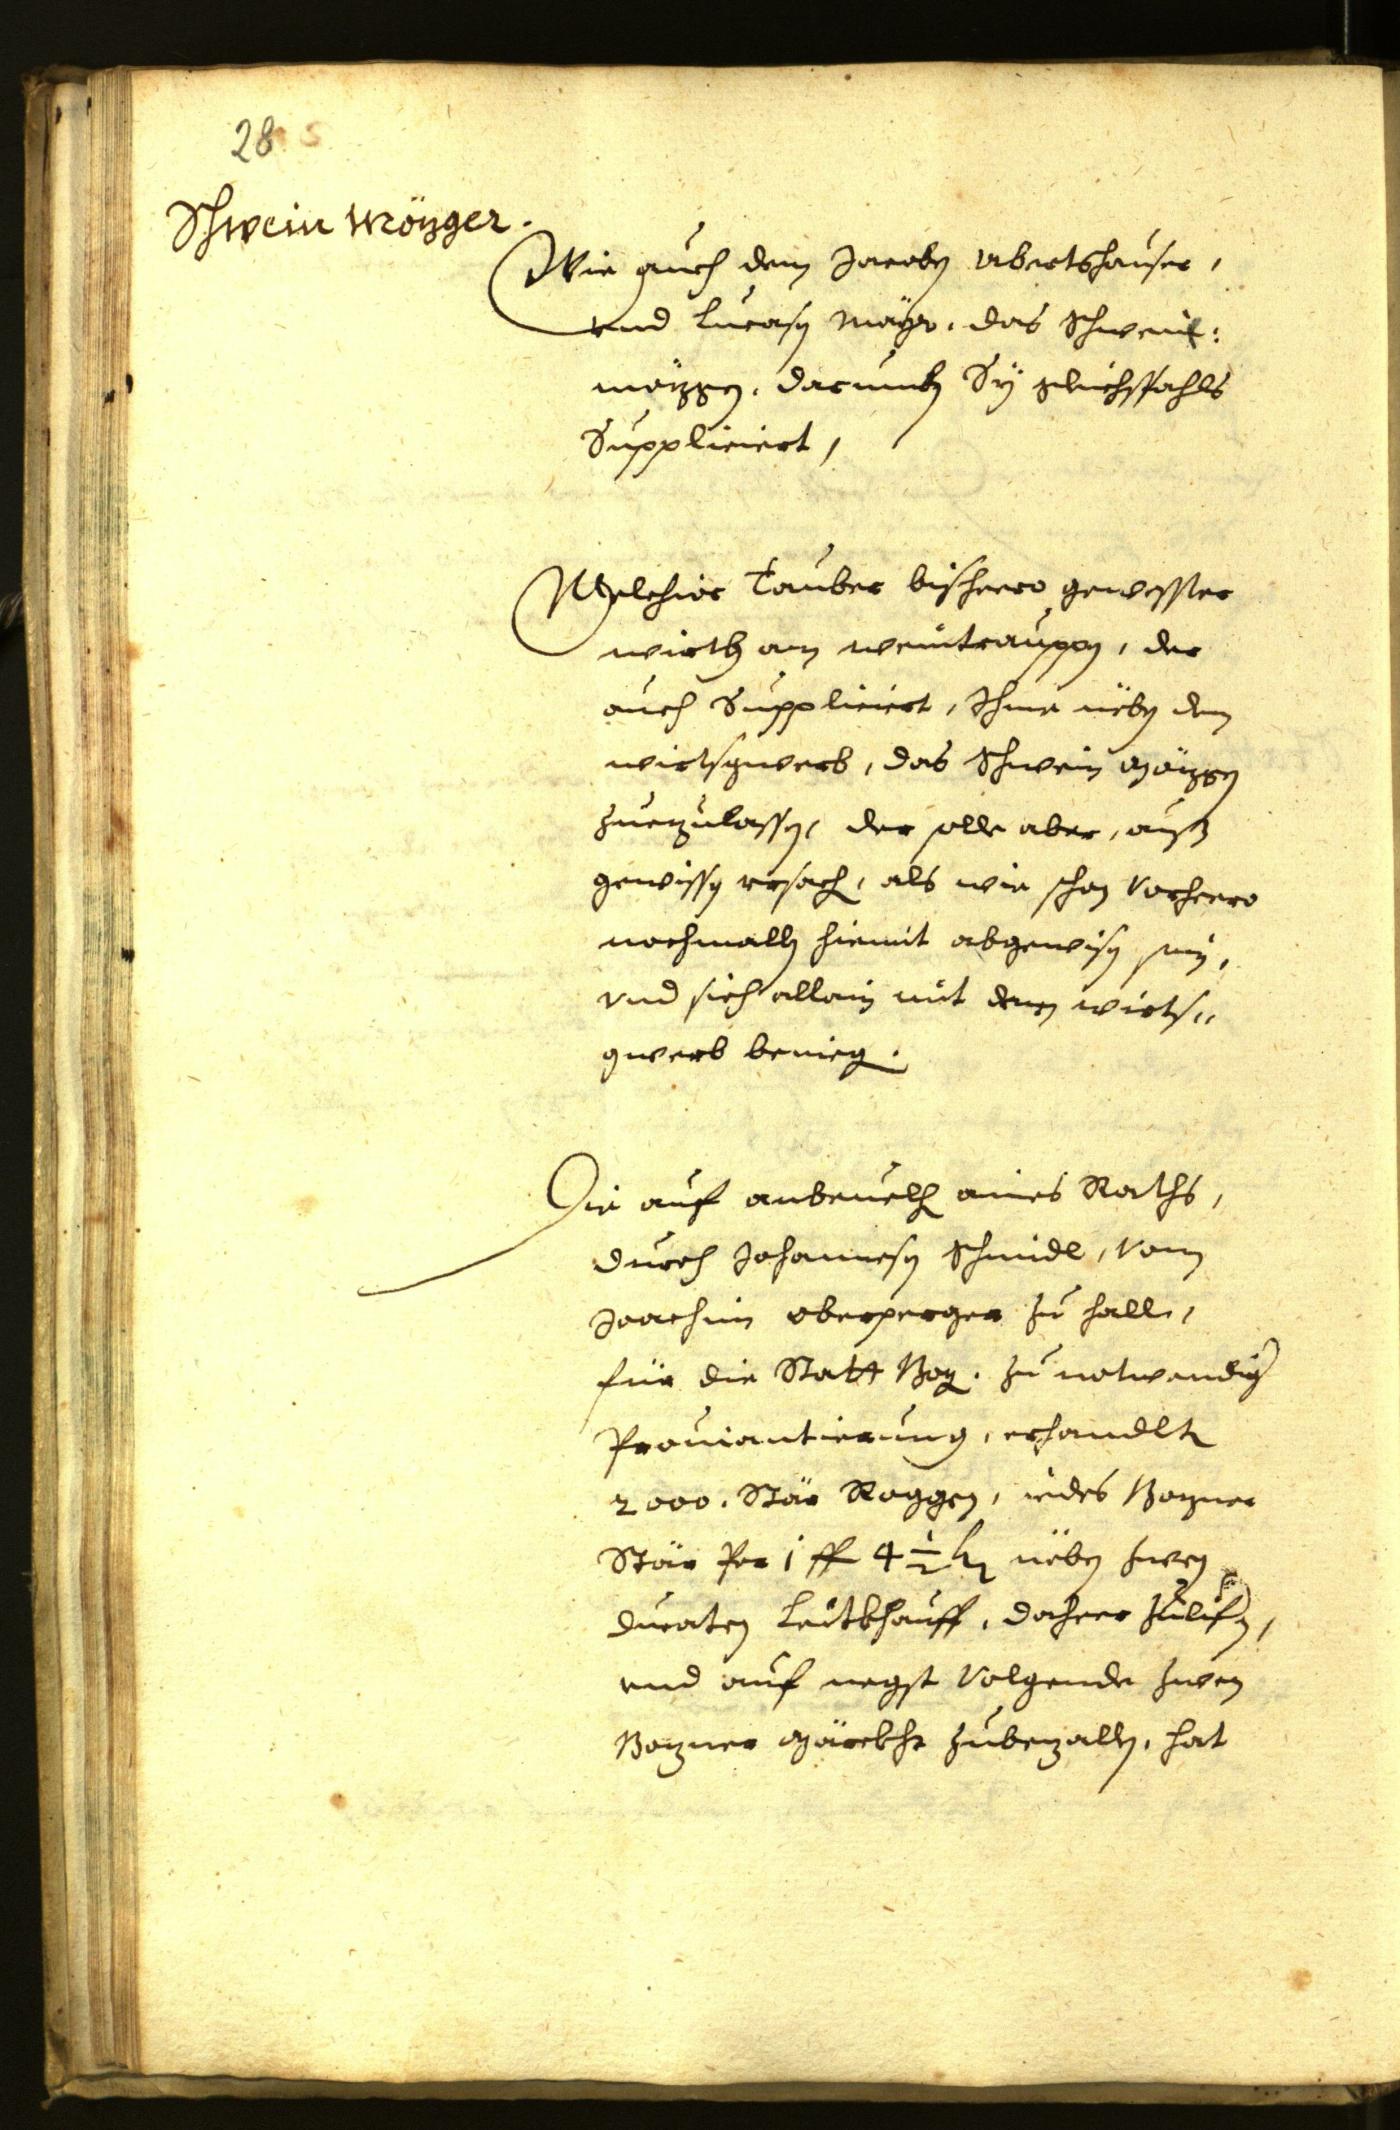 28
Schwein Mözger.
Wie auch dem Jacoben Abertshauser,
vnd Lucasen Mayr, das Schwein:
mözgen, darumben Sÿ gleichsfahls
Suppliciert,
Melchior Tauber bisheero gewesster
wirth am weintrauppen, der
auch Suppliciert, Ihme nëben dem
wirtsgwerb, das Schwein Mözgen
zuezulassen, der solle aber, auß
gewissen vrsach, als wie schon vorheero
nochmallen hiemit abgewisen sein,
vnd sich allain mit denen wirts„
gwerb benieg.
Die auf anbeuelh aines Raths,
durch Johannesen Schmidl, vom
Joachim oberperger zu hall,
für die Statt Boz. zu notwendig
Prouiantierung, erhandlte
2000. Stär Roggen, iedes Bozner
Stär Per 1 fl 4 1/2 kr nëben zwen
ducaten Leütkhauff, daheer zulifern,
vnd auf negst volgende zwen
Bozner Märckht zubezallen, hat